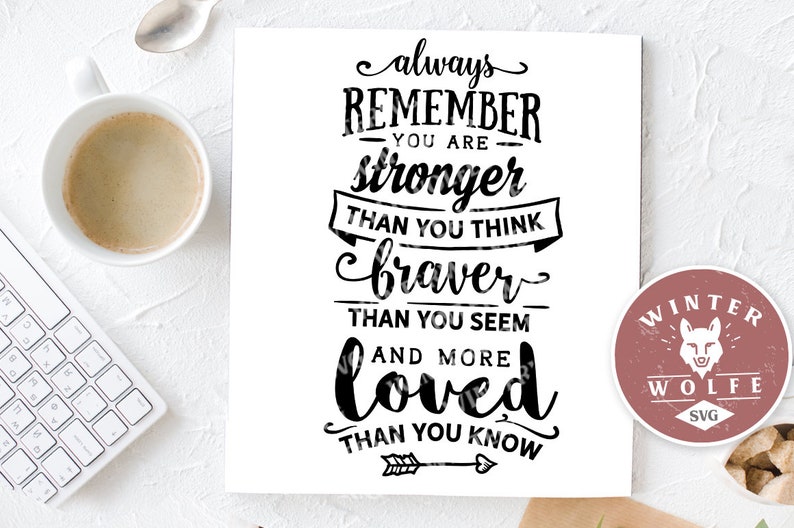 always
REMEMBER
YOU ARE
stronger
THAN YOU THINK
braver
THAN YOU SEEM
AND MORE
loved
THAN YOU KNOW
WINTER
WOLFE
SVG